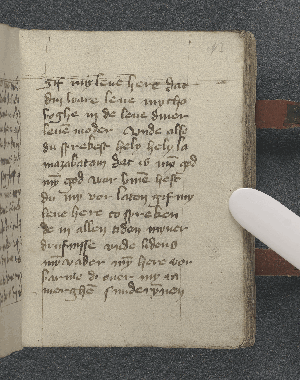 gif my leue here dat
din ware leue mytho
soghe in de leue diner
leue moder Vnde alse
du sprekest hely hely la
mazabatani dat is myn god
myn god wor vmme hest
du my vor laten gif my
leue here to spreken
de in allen tiden myner
drofnisse vnde lidens
myn vader myn here vor
barme di ouer my